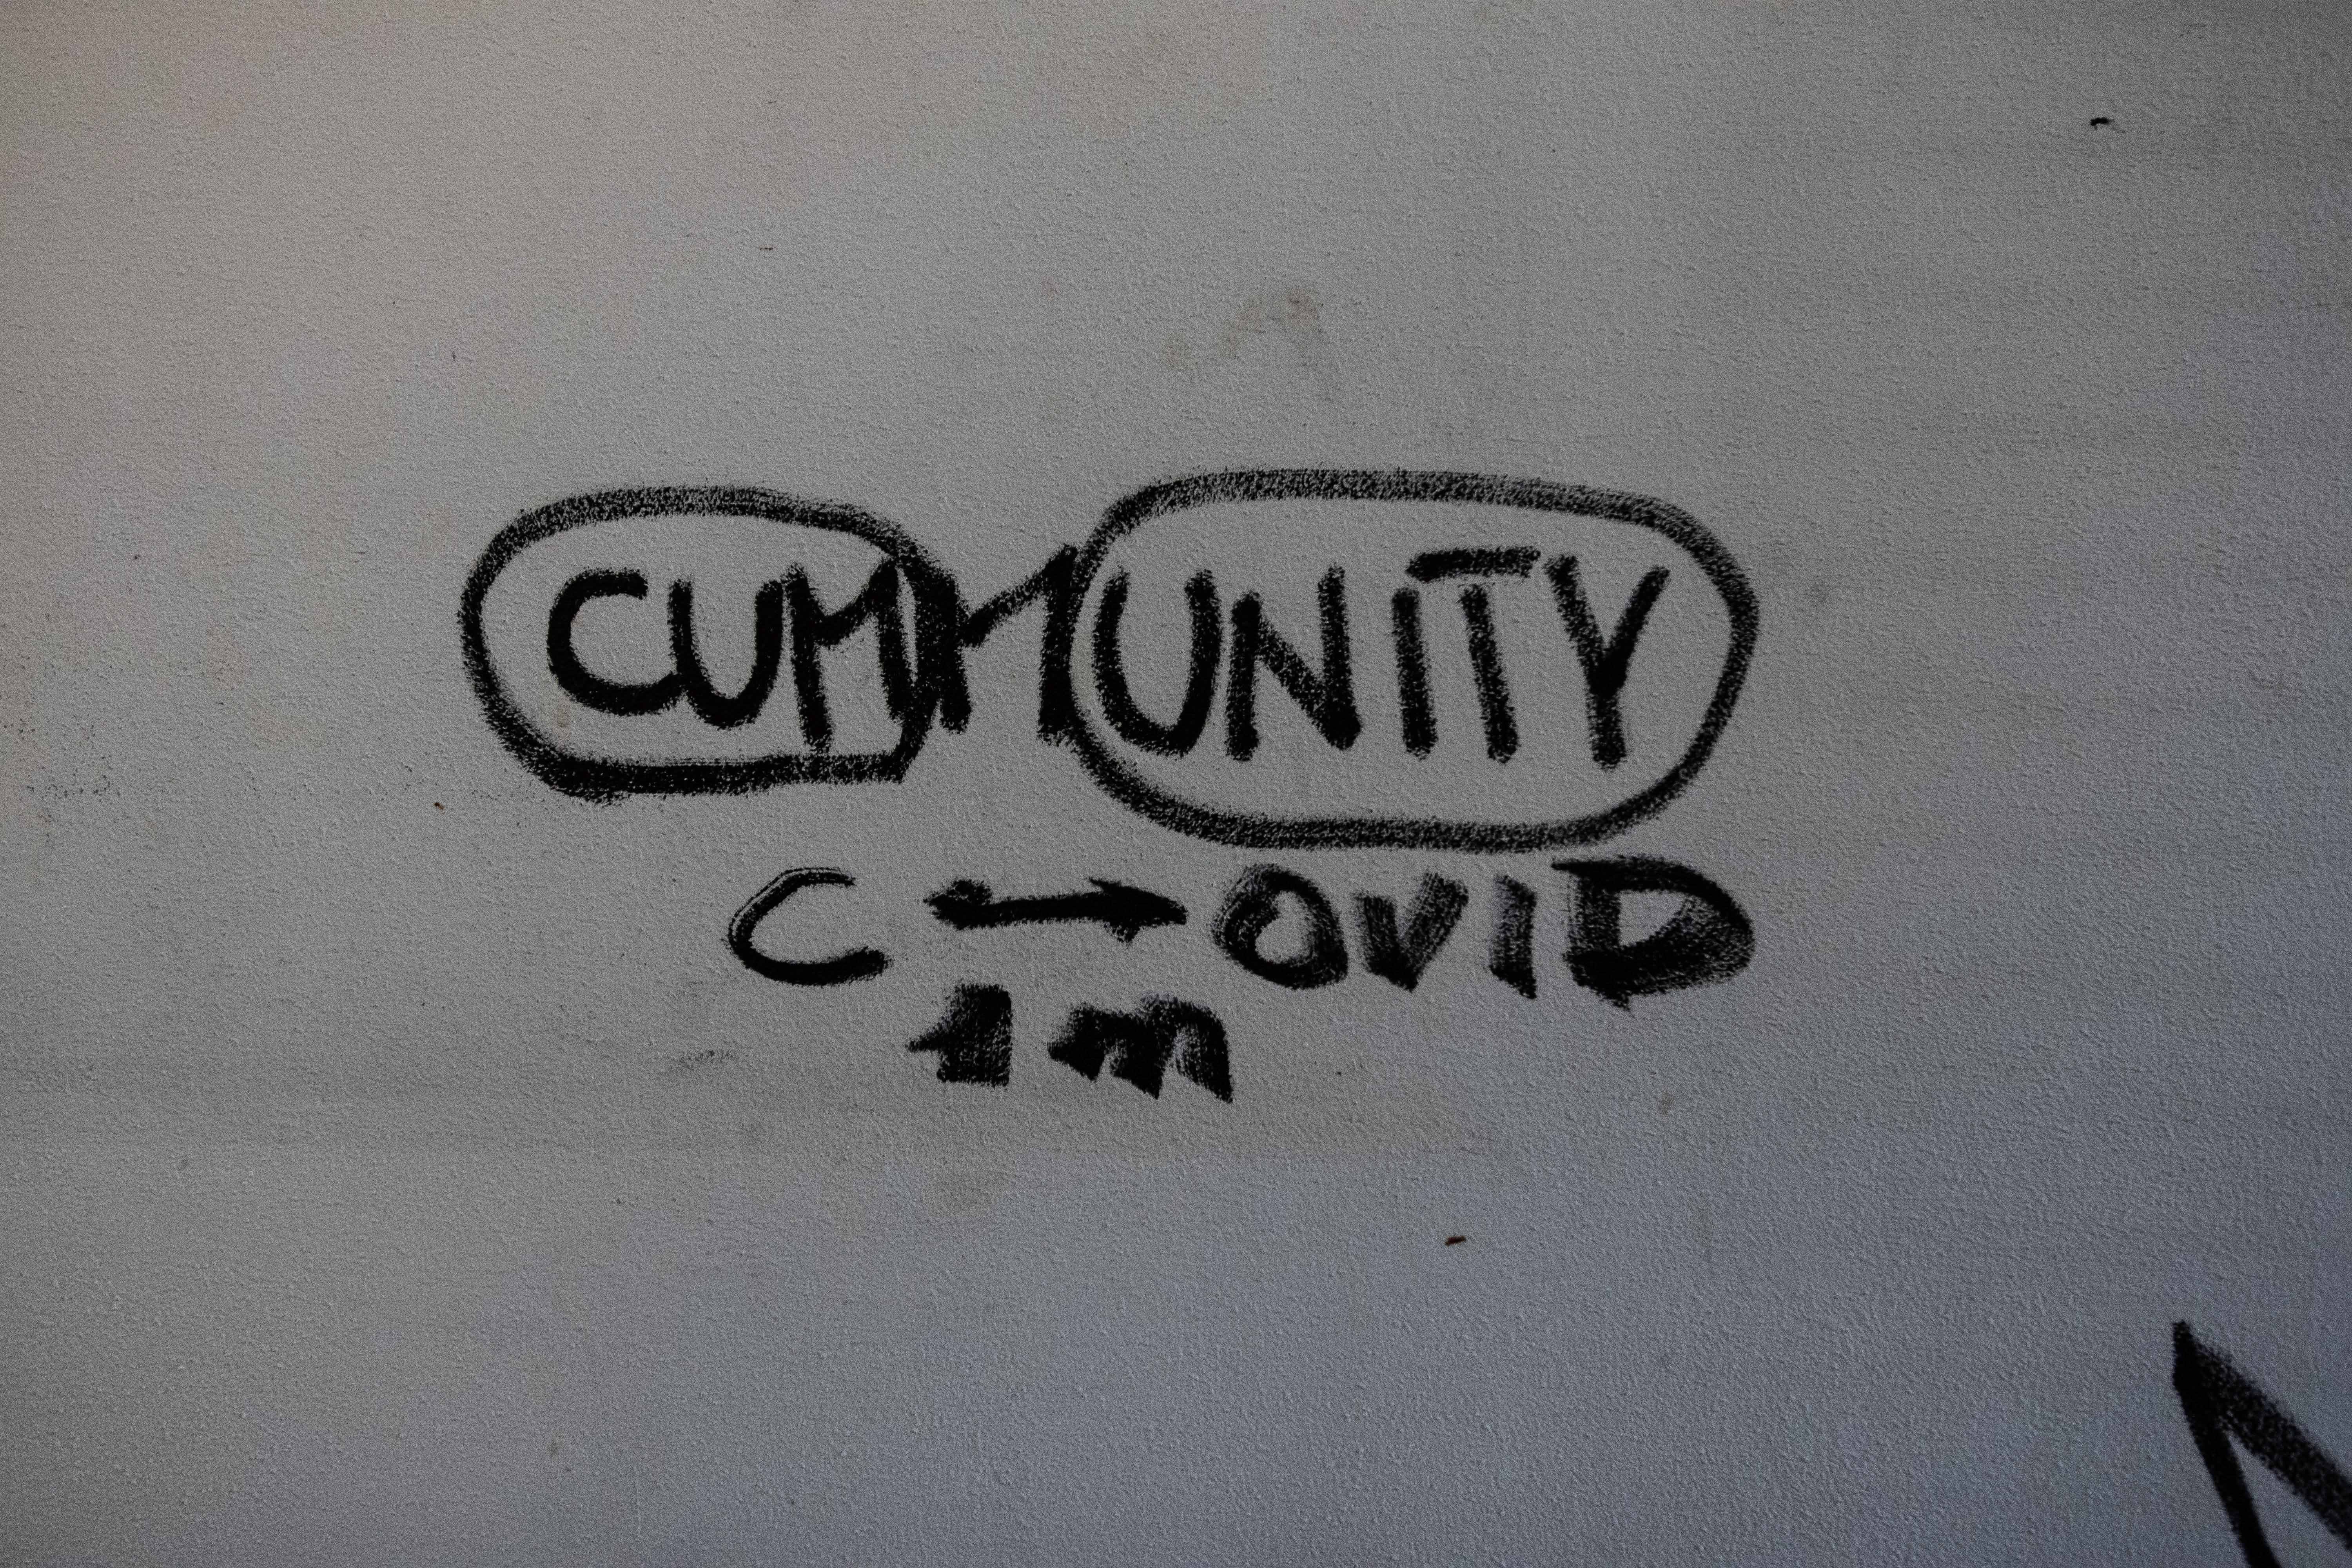 CUMMUNITY
C ↔ OVID
1 m